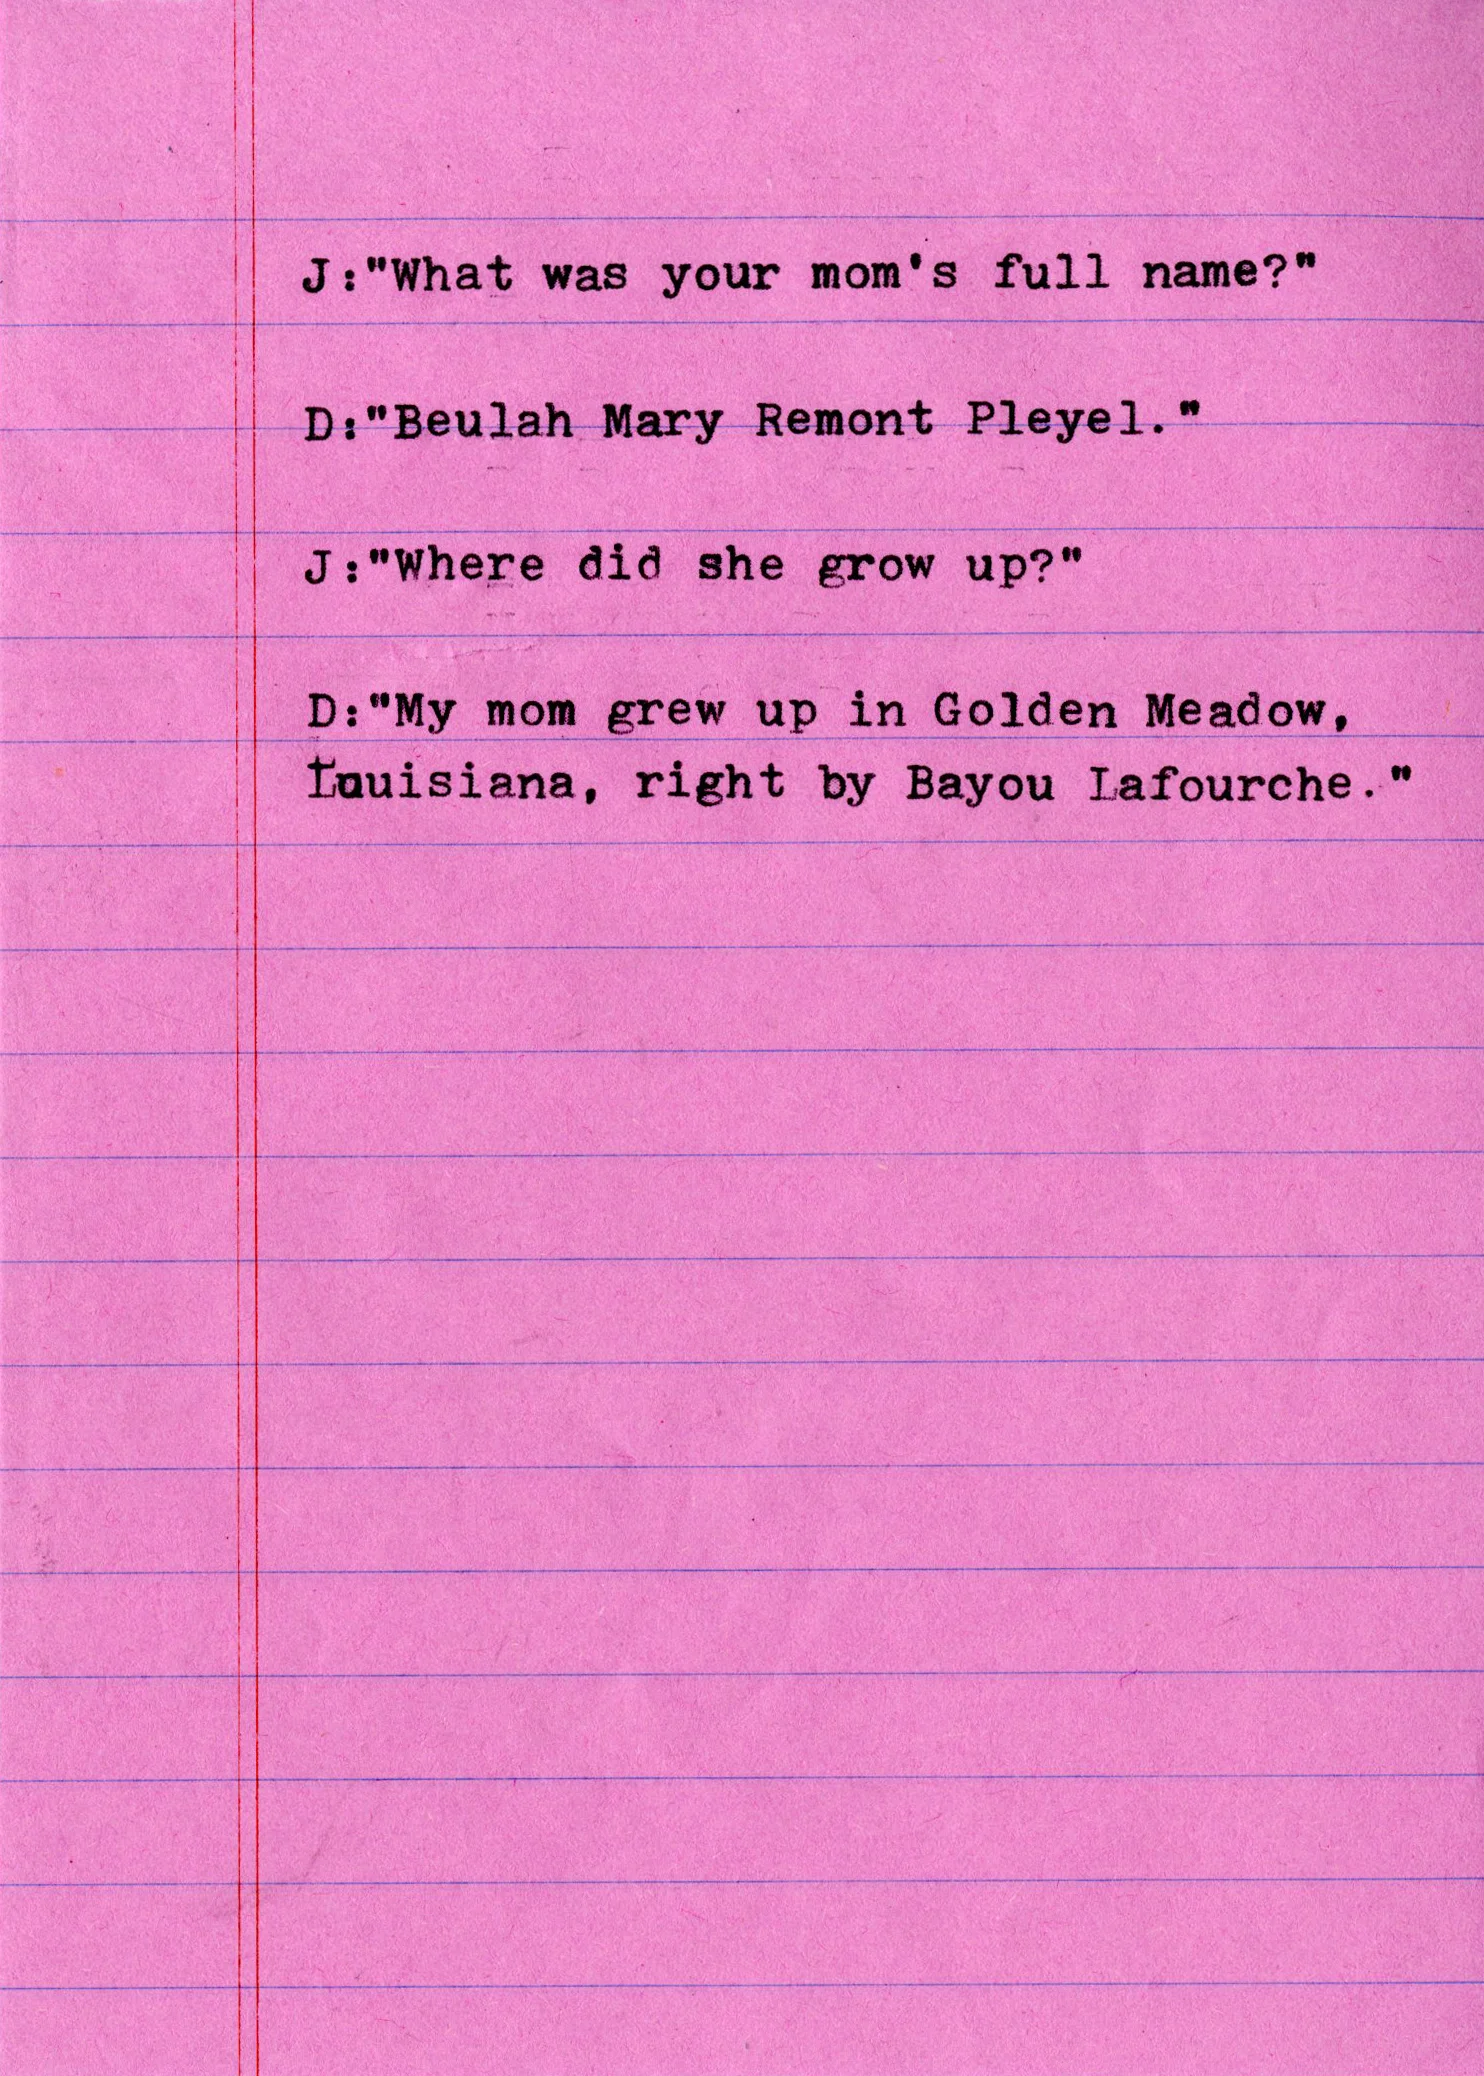 J:"What was your mom's full name?"
D:"Beulah Mary Remont Pleyel."
J:"Where did she grow up?"
D:"My mom grew up in Golden Meadow,
Louisiana, right by Bayou Lafourche."